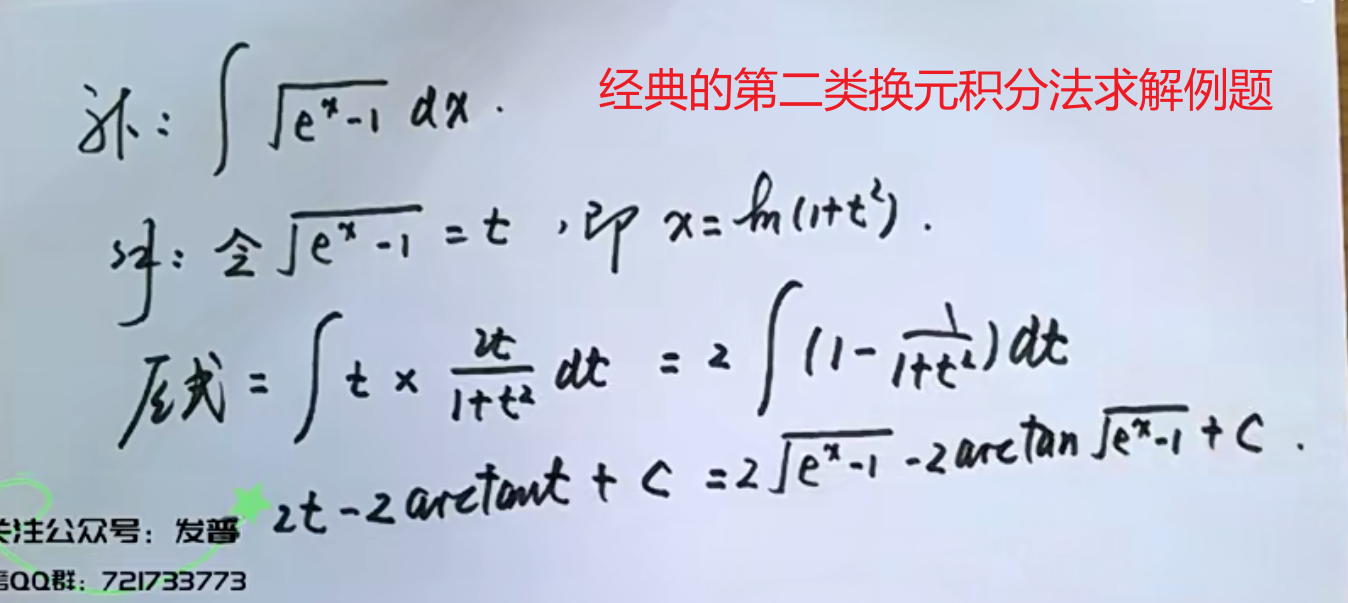 求：∫√(eˣ-1) dx .
经典的第二类换元积分法求解例题
解：令√(eˣ-1) = t ，即 x = ln(1+t²) .
原式 = ∫ t × 2t/(1+t²) dt = 2∫(1 - 1/(1+t²)) dt
2t - 2arctant + C = 2√(eˣ-1) - 2arctan√(eˣ-1) + C .
关注公众号：发普
QQ群：721733773